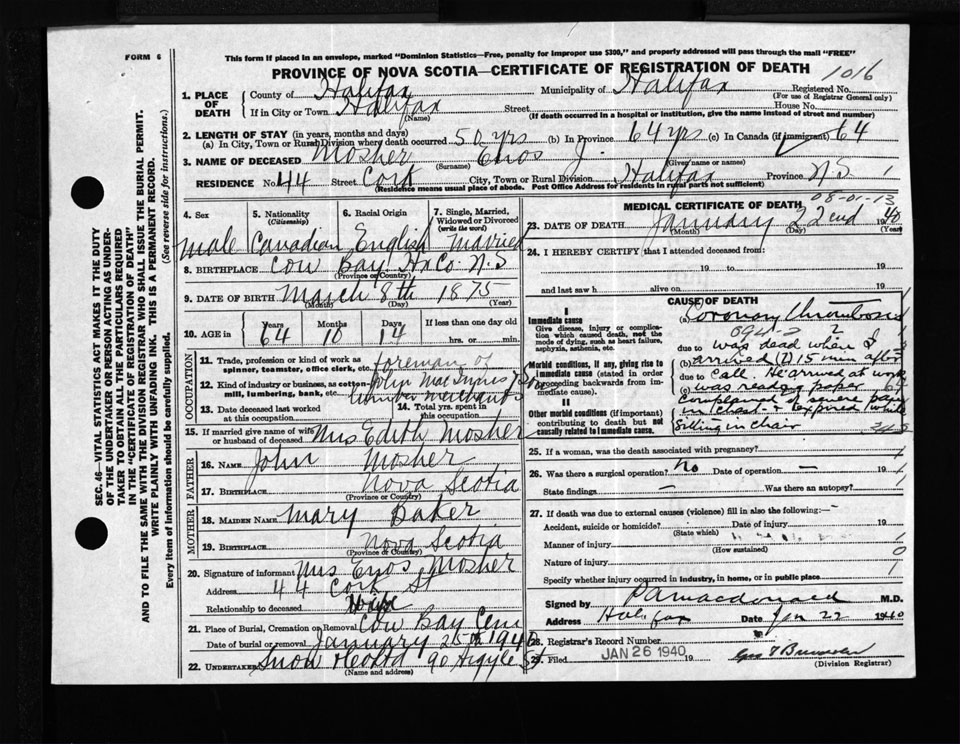 FORM 6
This form if placed in an envelope, marked "Dominion Statistics—Free, penalty for improper use $300," and properly addressed will pass through the mail "FREE"
PROVINCE OF NOVA SCOTIA—CERTIFICATE OF REGISTRATION OF DEATH
1016
1. PLACE OF DEATH
County of Halifax Municipality of Halifax Registered No.
(For use of Registrar General only)
If in City or Town Halifax Street House No.
(Name) (If death occurred in a hospital or institution, give the name instead of street and number)
2. LENGTH OF STAY (in years, months and days)
(a) In City, Town or Rural Division where death occurred 50 yrs (b) In Province 64 yrs (c) In Canada (if immigrant) 64
3. NAME OF DECEASED Mosher Enos J.
(Surname) (Given name or names)
RESIDENCE No. 44 Street Cork City, Town or Rural Division Halifax Province N.S 1
(Residence means usual place of abode. Post Office Address for residents in rural parts not sufficient)
SEC. 46—VITAL STATISTICS ACT MAKES IT THE DUTY
OF THE UNDERTAKER OR PERSON ACTING AS UNDER-
TAKER TO OBTAIN ALL THE PARTICULARS REQUIRED
IN THE "CERTIFICATE OF REGISTRATION OF DEATH"
AND TO FILE THE SAME WITH THE DIVISION REGISTRAR WHO SHALL ISSUE THE BURIAL PERMIT.
WRITE PLAINLY WITH UNFADING INK. THIS IS A PERMANENT RECORD.
Every item of information should be carefully supplied. (See reverse side for instructions.)
4. Sex
5. Nationality (Citizenship)
6. Racial Origin
7. Single, Married, Widowed or Divorced (write the word)
Male Canadian English Married
8. BIRTHPLACE Cow Bay Hx Co. N.S
(Province or Country)
9. DATE OF BIRTH March 8th 1875
(Month) (Day) (Year)
10. AGE in Years Months Days If less than one day old
64 10 14 hrs. or min.
OCCUPATION
11. Trade, profession or kind of work as spinner, teamster, office clerk, etc. foreman of
12. Kind of industry or business, as cotton mill, lumbering, bank, etc. John MacInnes
lumber merchants
13. Date deceased last worked at this occupation
14. Total yrs. spent in this occupation
15. If married give name of wife or husband of deceased Mrs Edith Mosher
FATHER
16. NAME John Mosher
17. BIRTHPLACE Nova Scotia
(Province or Country)
MOTHER
18. MAIDEN NAME Mary Baker
19. BIRTHPLACE Nova Scotia
(Province or Country)
20. Signature of informant Mrs Enos Mosher
Address 44 Cork St
Relationship to deceased Wife
21. Place of Burial, Cremation or Removal Cow Bay Cem
Date of burial or removal January 25th 1940
22. UNDERTAKER Snow 90 Argyle St
(Name and address)
MEDICAL CERTIFICATE OF DEATH
08-01-13
23. DATE OF DEATH January 22nd 1940
(Month) (Day) (Year)
24. I HEREBY CERTIFY that I attended deceased from:
19 to 19
and last saw h alive on 19
CAUSE OF DEATH
I
Immediate cause
Give disease, injury or complication which caused death, not the mode of dying, such as heart failure, asphyxia, asthenia, etc.
Morbid conditions, if any, giving rise to immediate cause (stated in order proceeding backwards from immediate cause).
II
Other morbid conditions (if important) contributing to death but not causally related to immediate cause.
(a) Coronary Thrombosis
094-2 2
due to was dead when I
(b) arrived (?) 15 min after
due to call. He arrived at work
(c) was reading paper
complained of severe pain
in chest & expired while
sitting in chair
25. If a woman, was the death associated with pregnancy?
26. Was there a surgical operation? No Date of operation — 19
State findings — Was there an autopsy?
27. If death was due to external causes (violence) fill in also the following:—
Accident, suicide or homicide? Date of injury 19
(State which)
Manner of injury
(How sustained)
Nature of injury
Specify whether injury occurred in industry, in home, or in public place
Signed by P A Macdonald M.D.
Address Halifax Date Jan 22 1940
28. Registrar's Record Number
29. Filed JAN 26 1940 19
(Division Registrar)